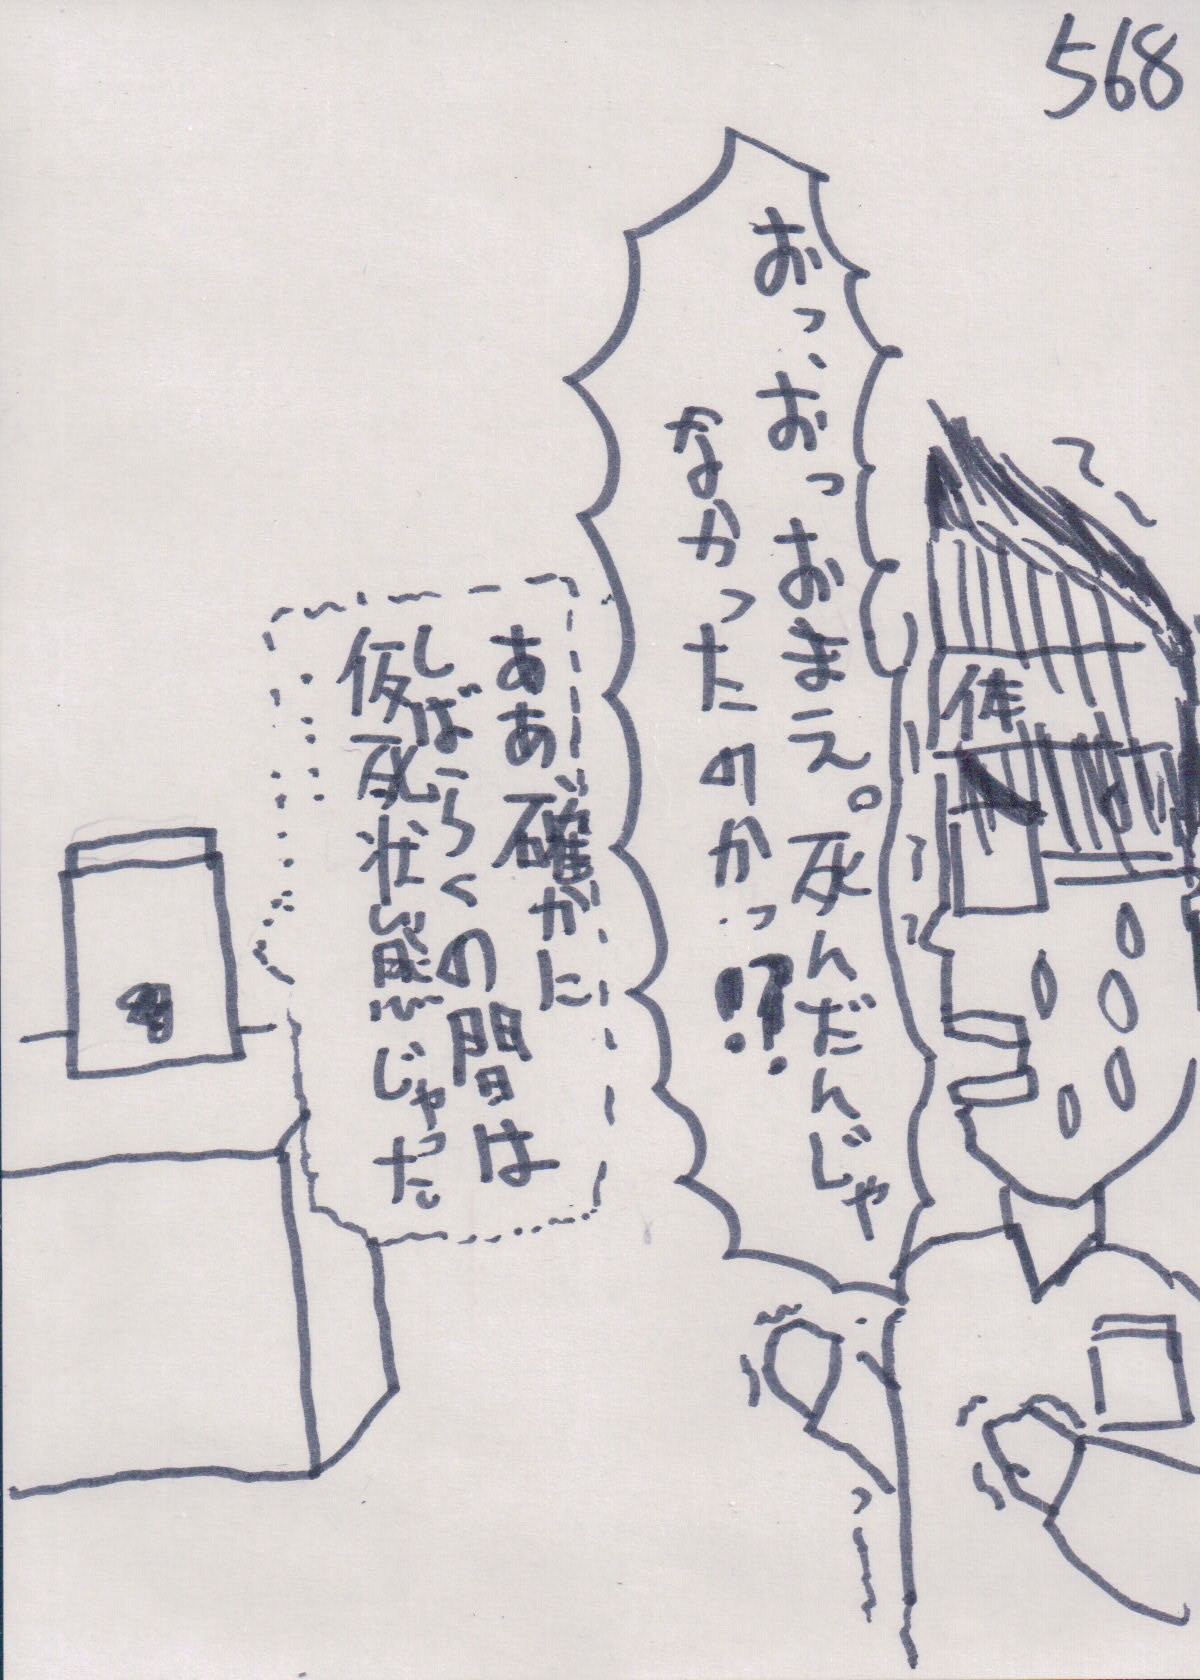 568
おっ、おっおまえ。死んだんじゃ
なかったのかっ!?
体
ああ確かに
しばらくの間は
仮死状態じゃった。